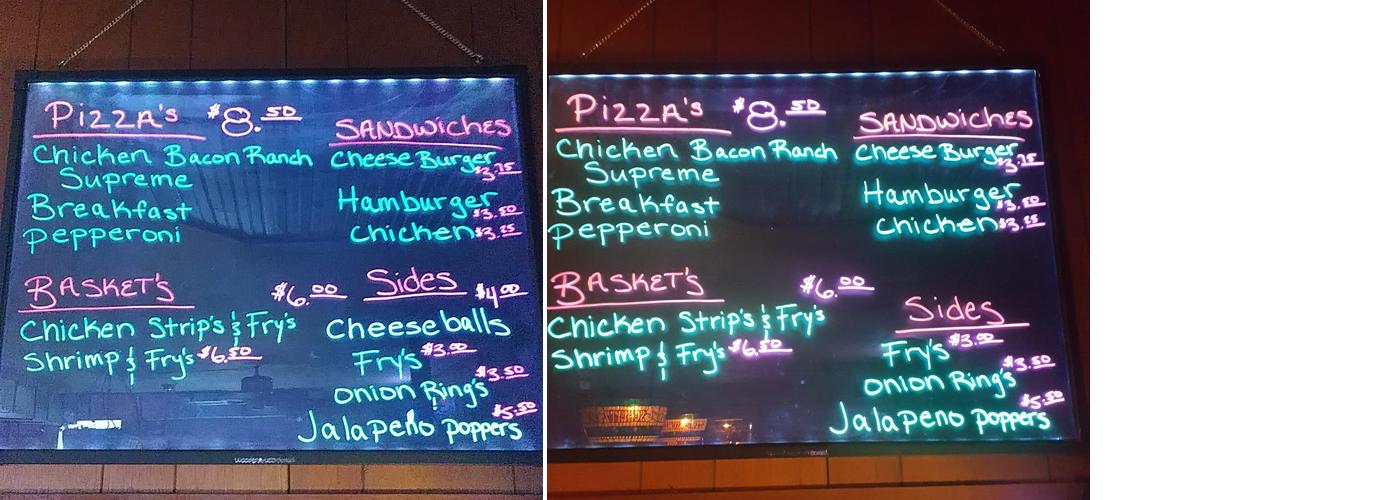 Pizza's $8.50
Chicken Bacon Ranch
Supreme
Breakfast
Pepperoni
SANDWiCHES
Cheese Burger $3.75
Hamburger $3.50
Chicken $3.25
BASKET's $6.00
Chicken Strip's & Fry's
Shrimp & Fry's $6.50
Sides $4.00
Cheeseballs
Fry's $3.00
Onion Ring's $3.50
Jalapeño poppers $5.50
Pizza's $8.50
Chicken Bacon Ranch
Supreme
Breakfast
Pepperoni
SANDWiCHES
Cheese Burger $3.75
Hamburger $3.50
Chicken $3.25
BASKET's $6.00
Chicken Strip's & Fry's
Shrimp & Fry's $6.50
Sides
Fry's $3.00
Onion Ring's $3.50
Jalapeno poppers $5.50